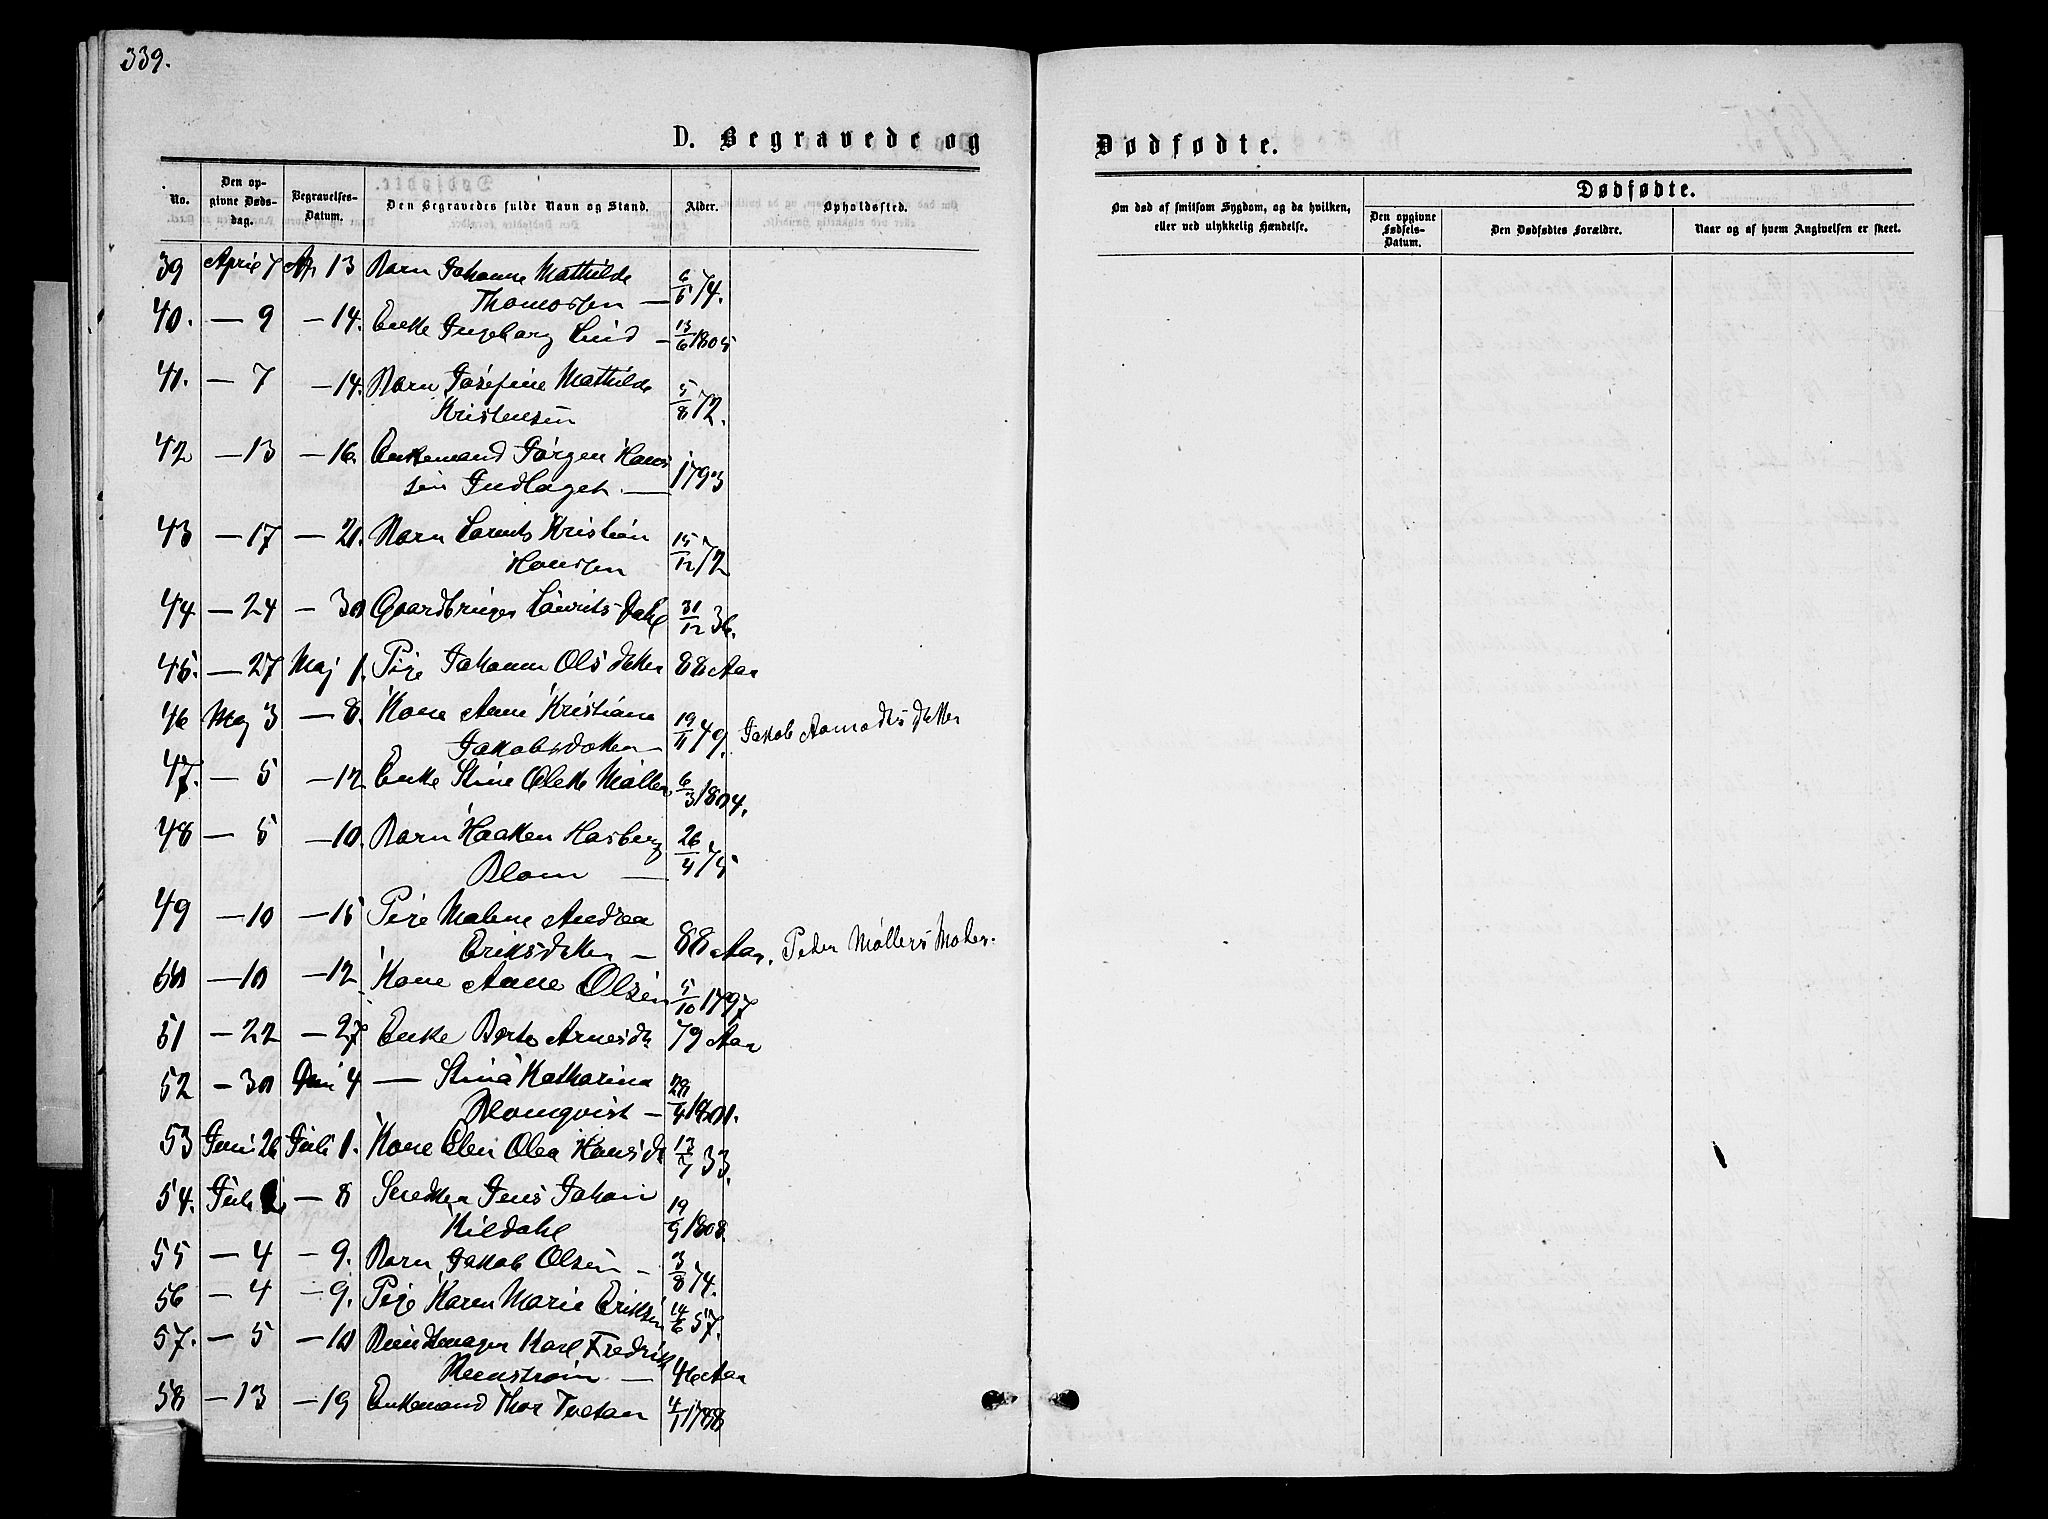 339.
D. Begravede og
Dødfødte.
No.
Den op-
givne Døds-
dag.
Begravelses-
Datum.
Den Begravedes fulde Navn og Stand.
Alder.
Opholdssted.
Om død af smitsom Sygdom, og da hvilken,
eller ved ulykkelig Hændelse.
Dødfødte.
Den opgivne
Fødsels-
Datum.
Den Dødfødtes Forældre.
Naar og af hvem Angivelsen er skeet.
39 April 7 Ap 13 Barn Johanne Mathilde
Thomassen — 6/5 74.
40. — 9 — 14. Enke Ingeborg Lind — 13/6 1805
41. — 7 — 14. Barn Josefine Mathilde
Kristensen 5/8 72.
42 — 13 — 16 Enkemand Jørgen Hans
sen Indlaget — 1793
43 — 17 — 21. Barn Lorents Kristian
Hanssen 15/12 72
44 — 24 — 30 Gaardbruger Laurits Dahl 31/12 36.
45. — 27 Maj 1. Pige Johanne Olsdatter 88 Aar
46 Maj 3 — 8. Kone Anne Kristiane
Jakobsdatter — 19/11 49. Jakob Aamodts Datter
47. — 5 — 12 Enke Stine Olette Møller 6/3 1804.
48 — 5 — 10. Barn Haaken Hasberg
Blom — 26/4 75
49 — 10 — 15 Pige Malene Andrea
Eriksdatter — 88 Aar. Peter Møllers Moder.
50 — 10 — 12 Kone Anne Olsen 5/10 1797
51 — 22 — 27 Enke Berte Arnesdt 79 Aar
52 — 30 Juni 4 — Stina Katharina
Blomqvist — 1801.
53 Juni 26 Juli 1. Kone Elen Olea Hansdt 13/7 33.
54. Juli — 8 Snedker Jens Johan
Kildahl 19/9 1808.
55 — 4 — 9. Barn Jakob Olsen — 3/8 74.
56 — 4 — 9. Pige Karen Marie Eriksen 14/6 57.
57. — 5 — 10 Buntmager Karl Fredrik
— 46 Aar
58 — 13 — 19 Enkemand Thor Tveten 4/1 1788